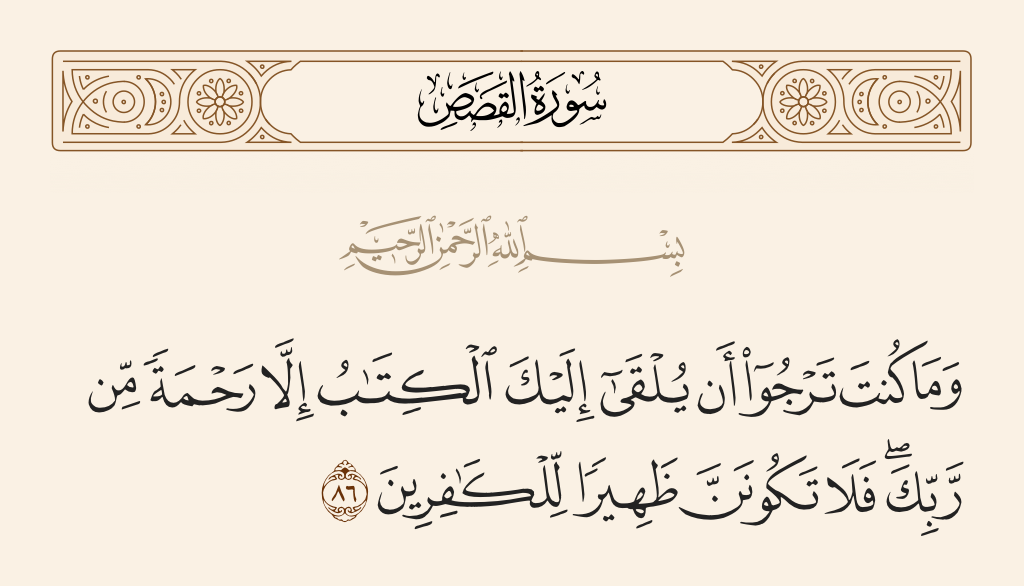 سُورَةُ القَصَصِ
بِسْمِ ٱللَّهِ ٱلرَّحْمَٰنِ ٱلرَّحِيمِ
وَمَا كُنتَ تَرْجُوٓا۟ أَن يُلْقَىٰٓ إِلَيْكَ ٱلْكِتَٰبُ إِلَّا رَحْمَةً مِّن
رَّبِّكَ ۖ فَلَا تَكُونَنَّ ظَهِيرًا لِّلْكَٰفِرِينَ ٨٦